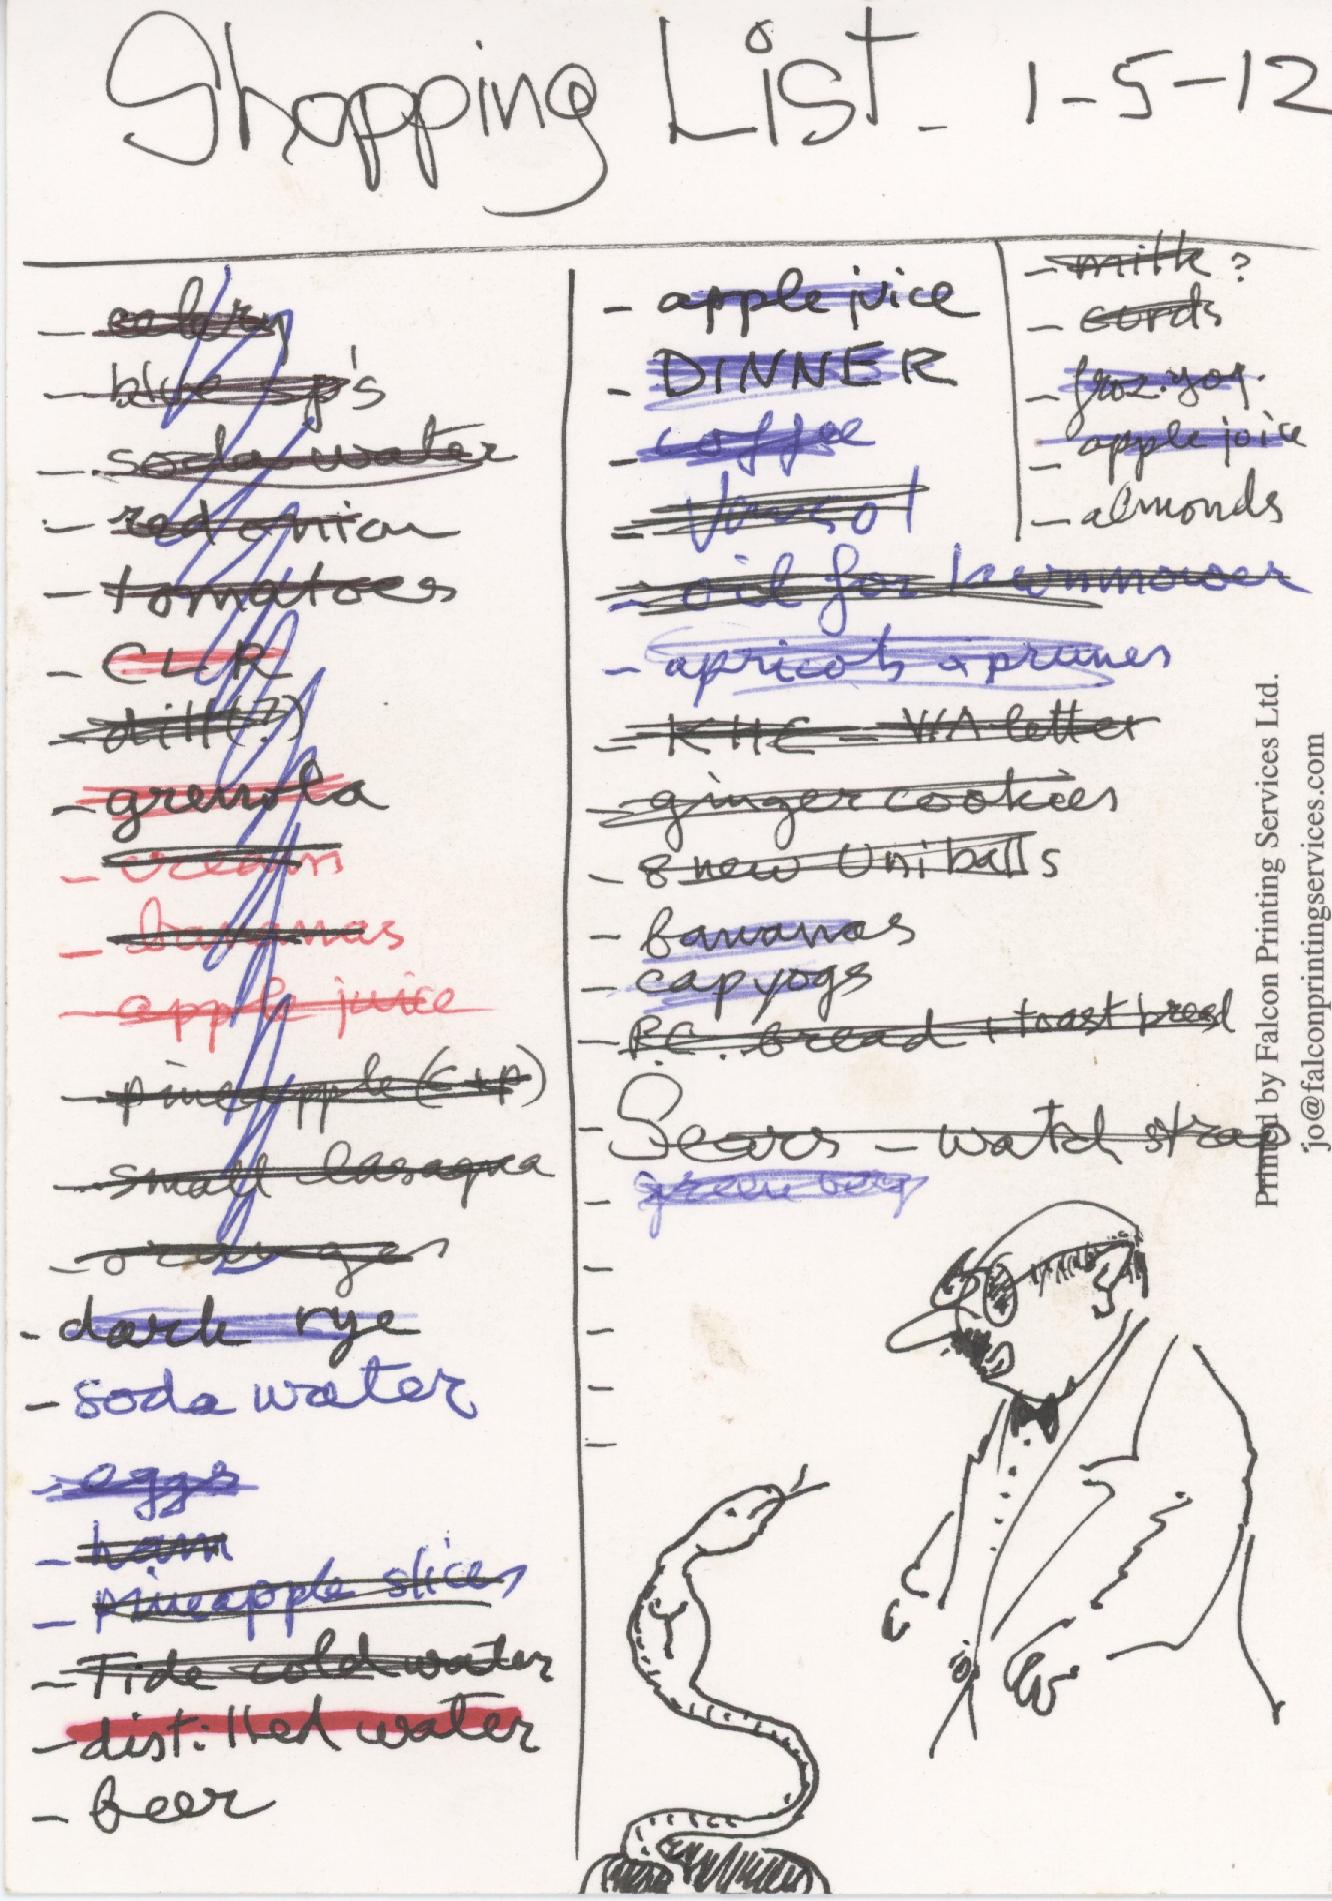 Shopping List - 1-5-12
- celery
- blue sp's
- soda water
- red onion
- tomatoes
- CLR
- dill (?)
- grenola
- cream
- bananas
- apple juice
- pineapple (C+P)
- small lasagna
- oranges
- dark rye
- soda water
- eggs
- ham
- pineapple slices
- Tide cold water
- distilled water
- beer
- apple juice
- DINNER
- coffee
- Varsol
- oil for lawnmower
- apricots + prunes
- KHC - VA letter
- ginger cookies
- 8 new Uniballs
- bananas
- cap yogs
- P.C. bread + toast bread
- Sears - watch strap
-
-
-
-
-
- milk ?
- curds
- froz. yog.
- apple juice
- almonds
Printed by Falcon Printing Services Ltd.
jo@falconprintingservices.com